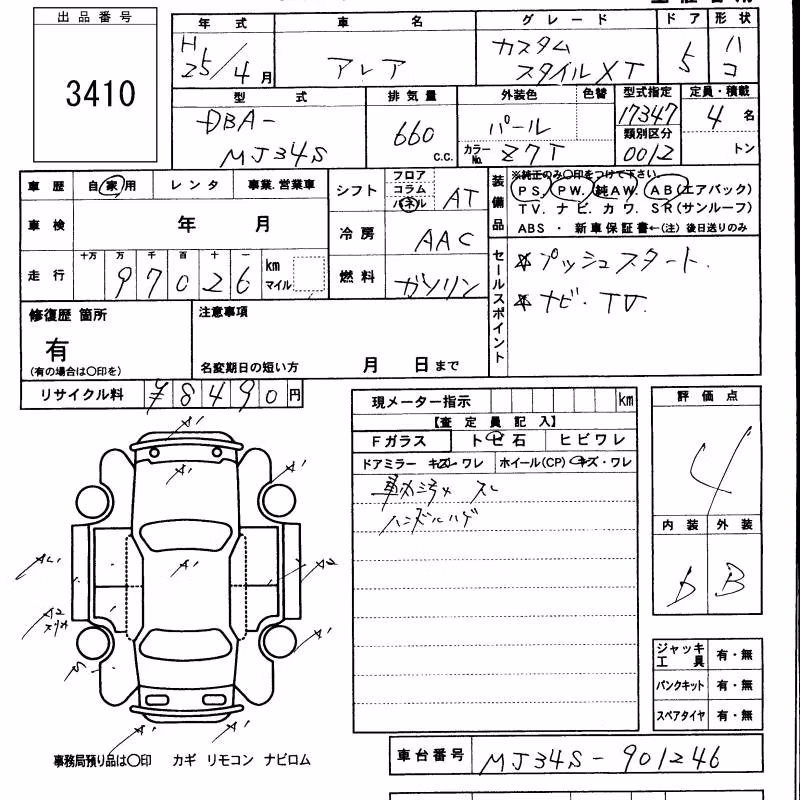 出品番号
3410
年式
H25/4月
車名
グレード
カスタム
スタイルXT
ドア
5
形状
ハコ
型式
DBA-
MJ34S
排気量
660
c.c.
外装色
パール
色替
カラーNo.
Z7T
型式指定
17347
類別区分
0012
定員・積載
4名
トン
車歴
自家用
レンタ
事業.営業車
車検
年 月
走行
十万 万 千 百 十 一
97026
km
マイル
シフト
フロア
コラム
パネル
AT
冷房
AAC
燃料
ガソリン
装備品
※純正のみ〇印をつけて下さい。
PS. PW. 純AW. AB(エアバック)
TV. ナビ. カワ. SR(サンルーフ)
ABS ・ 新車保証書←(注) 後日送りのみ
セールスポイント
※プッシュスタート.
※ナビ・TV.
修復歴 箇所
有
(有の場合は〇印を)
注意事項
名変期日の短い方 月 日まで
リサイクル料
¥8490円
現メーター指示
km
【査定員記入】
Fガラス
トビ石
ヒビワレ
ドアミラー キズ・ワレ
ホイール(CP) キズ・ワレ
ハンドルハゲ
評価点
4
内装
外装
B
A'
A'
A'
A'
A'
A2
A2
A'
A'
A'
ジャッキ工具
有・無
パンクキット
有・無
スペアタイヤ
有・無
事務局預り品は〇印 カギ リモコン ナビロム
車台番号
MJ34S-901246